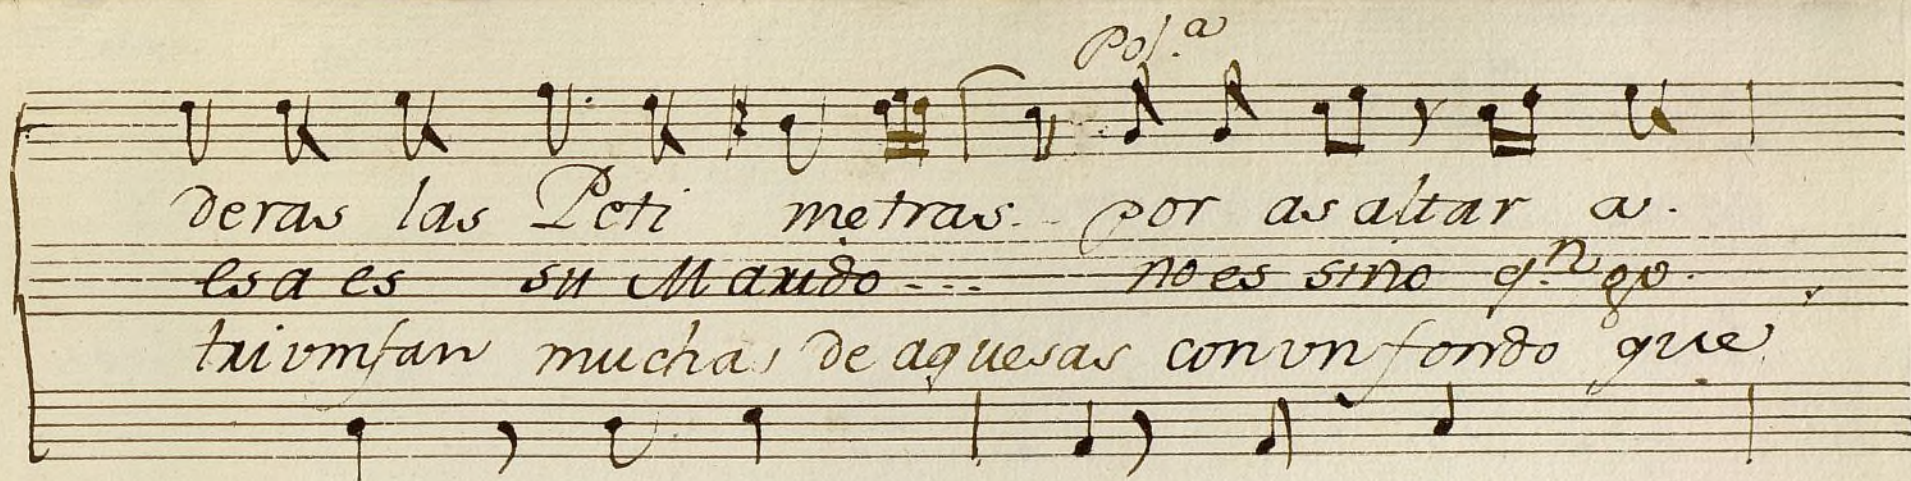 Pol.a
deras las Peti metras.. por asaltar a.
esa es su Marido --- no es sino q.n
triumfan muchas de aquesas con vn fondo que